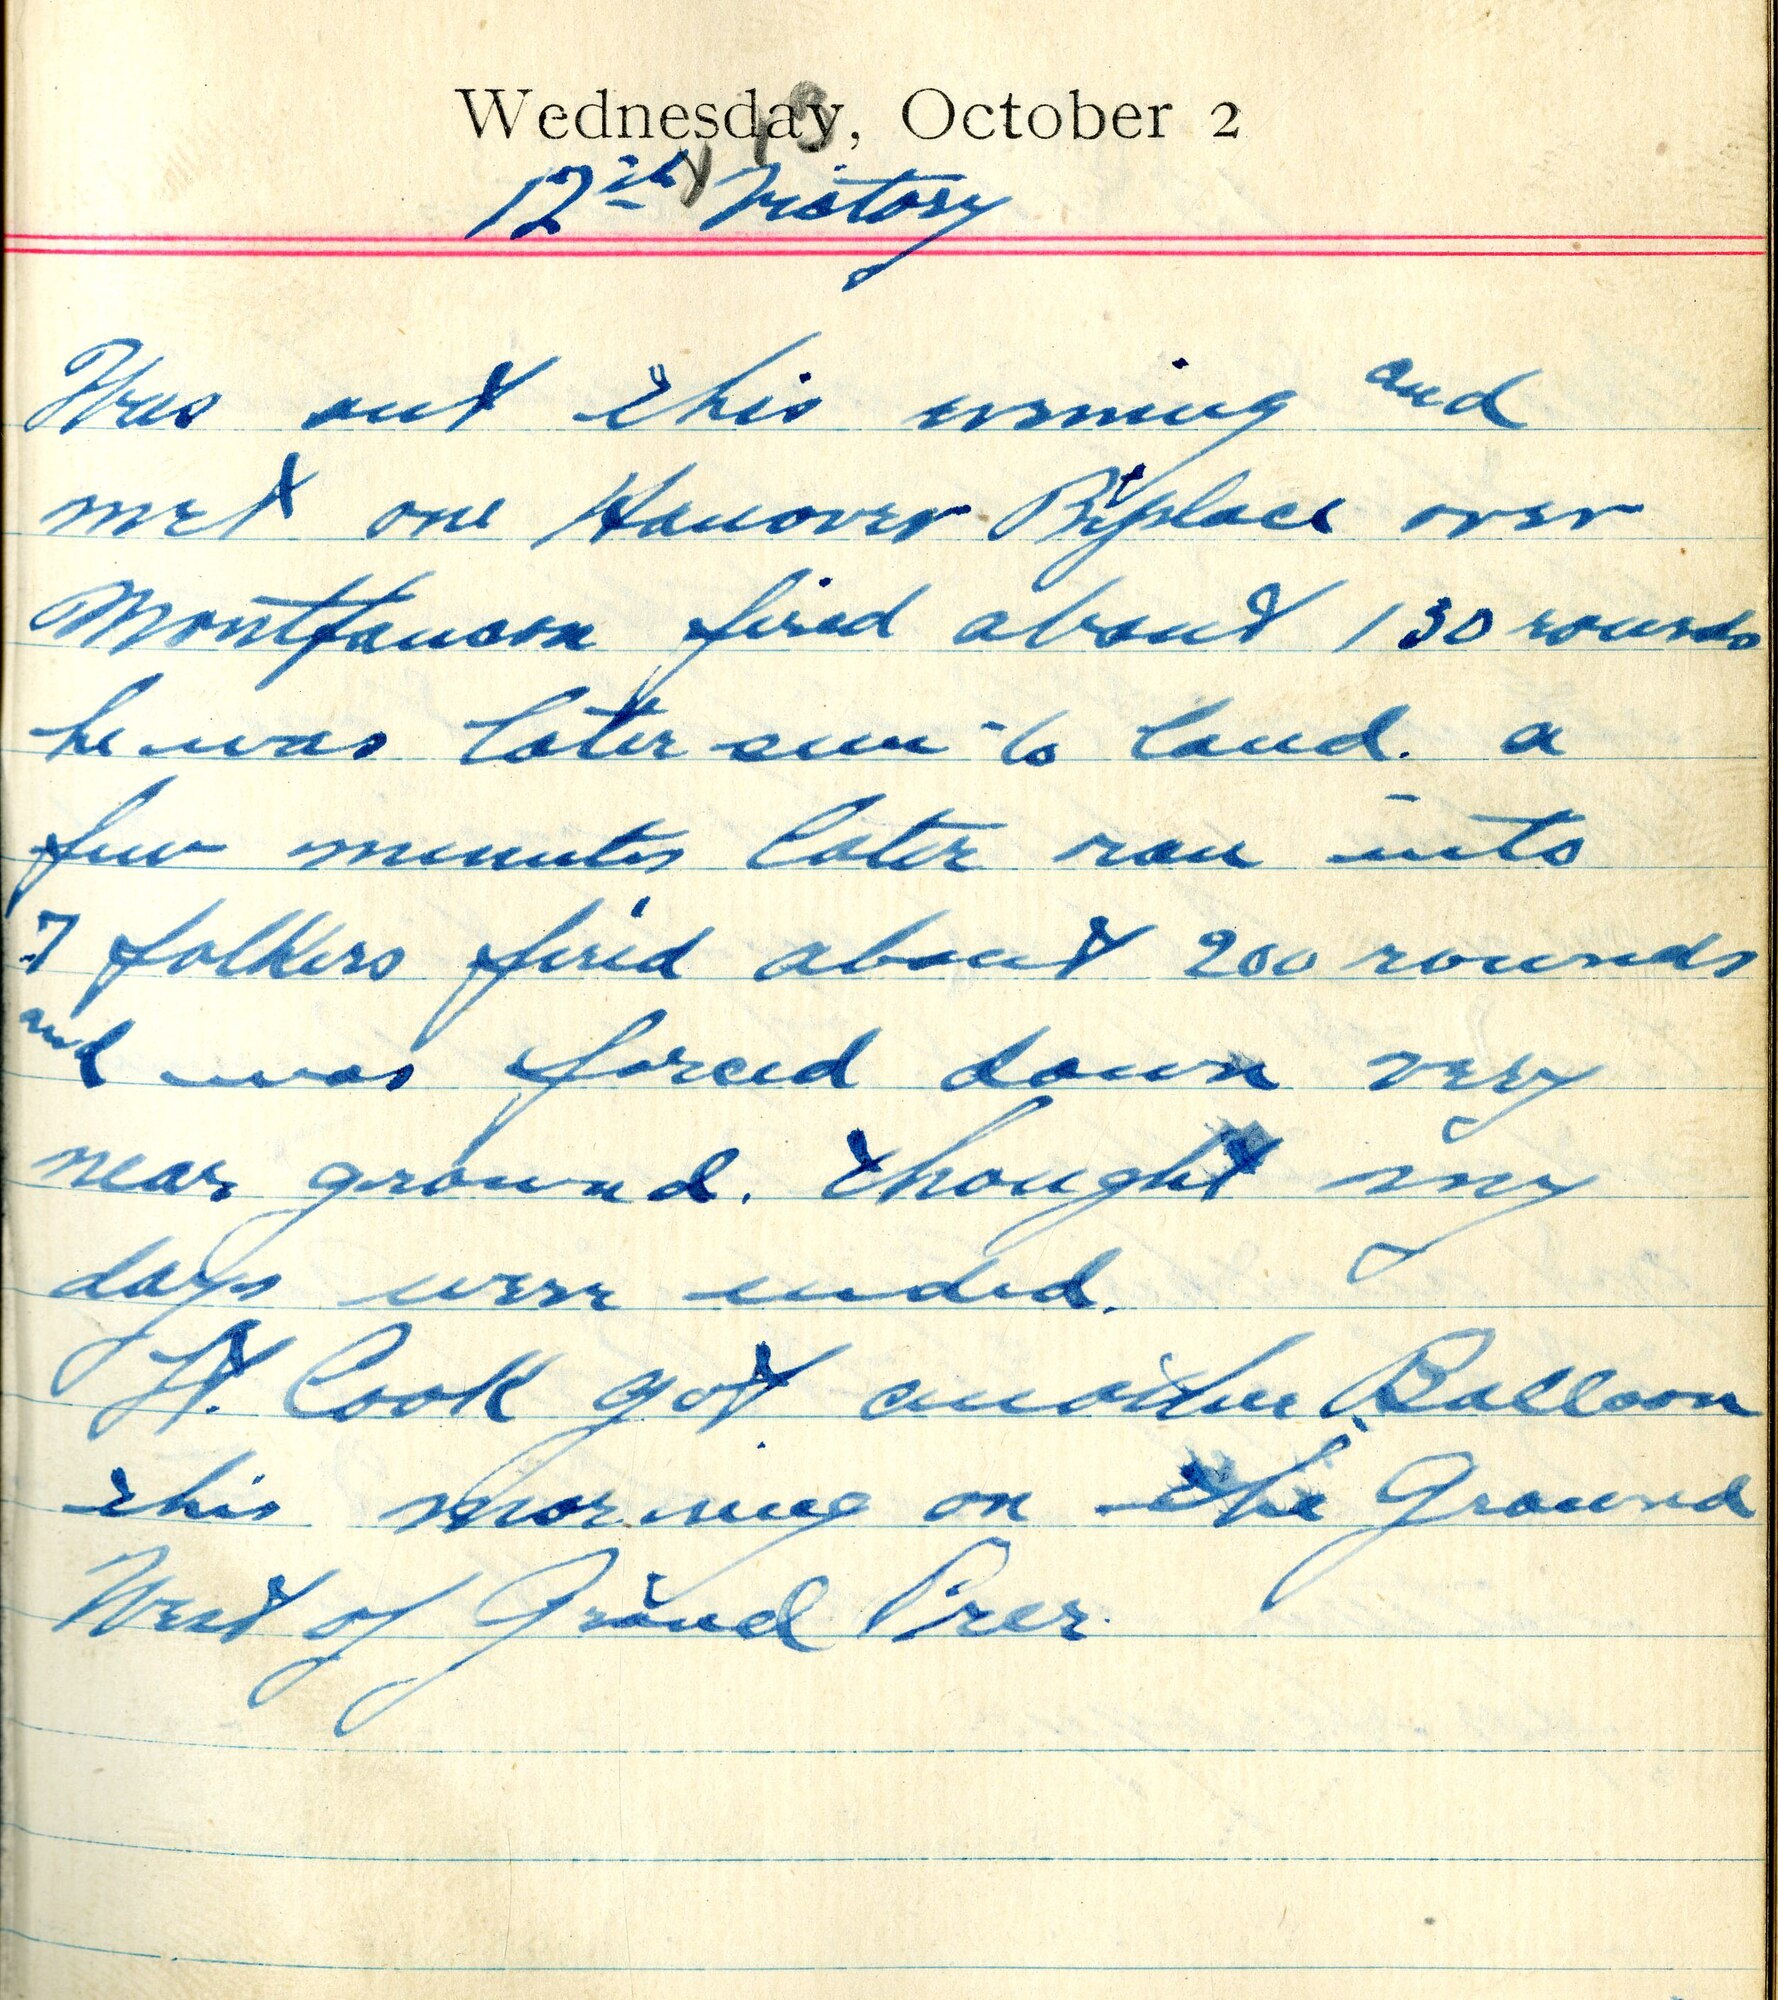 Wednesday, October 2
12th Victory
Was out this morning and
met one Hanover Biplace over
Montfaucon fired about 130 rounds
he was later seen to land. a
few minutes later ran into
7 folkers fired about 200 rounds
and was forced down very
near ground. thought my
days were ended.
Lt. Cook got another Balloon
this morning on the Ground
West of Grand Prer.